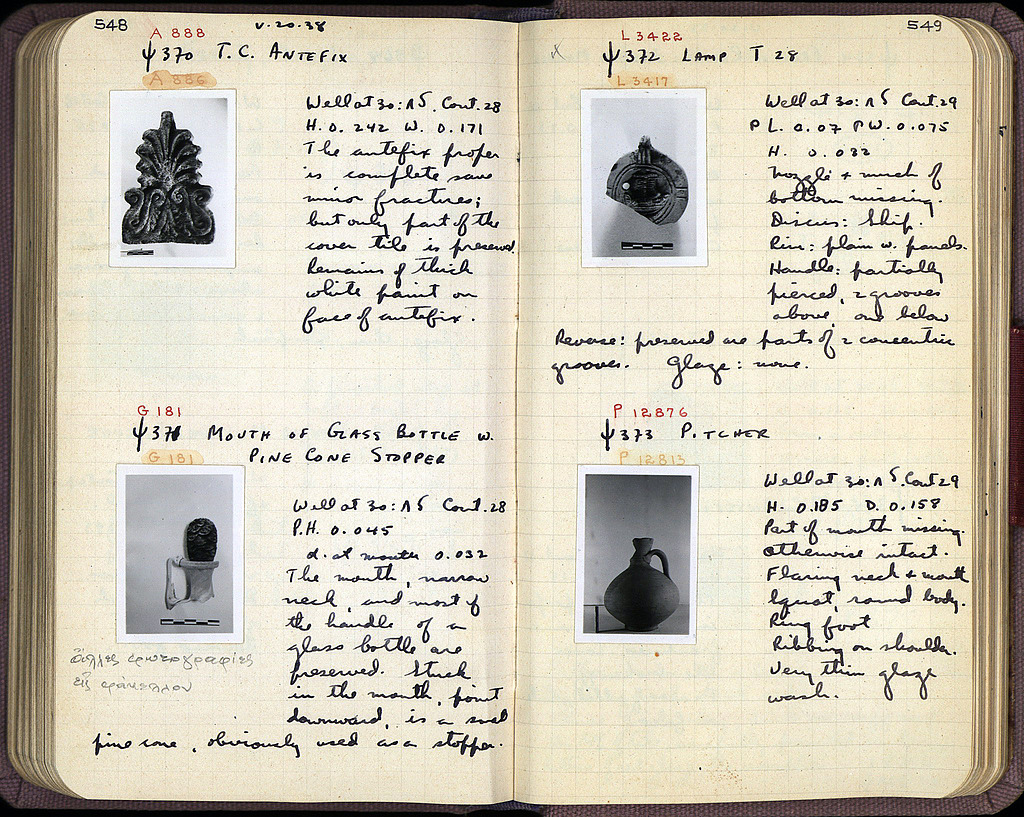 548
V.20.38
A 888
ψ370 T.C. ANTEFIX
A 886
Well at 30:ΛS. Cont. 28
H. 0.242 W. 0.171
The antefix proper
is complete save
minor fractures;
but only part of the
cover tile is preserved.
Remains of thick
white paint on
face of antefix.
G 181
ψ371 MOUTH OF GLASS BOTTLE W.
PINE CONE STOPPER
G 181
Well at 30:ΛS Cont. 28
P.H. 0.045
d. at mouth 0.032
The mouth, narrow
neck, and most of
the handle of a
glass bottle are
preserved. Stuck
in the mouth, point
downward, is a small
pine cone, obviously used as a stopper.
ἄλλες φωτογραφίες
εἰς φάκελλον
549
L 3422
X ψ372 LAMP T 28
L 3417
Well at 30:ΛS Cont. 29
P L. 0.07 P W. 0.075
H. 0.032
Nozzle + much of
bottom missing.
Discus: Ship.
Rim: plain w. panels.
Handle: partially
pierced, 2 grooves
above, one below
Reverse: preserved are parts of 2 concentric
grooves. Glaze: none.
P 12876
ψ373 PITCHER
P 12813
Well at 30:ΛS. Cont 29
H. 0.185 D. 0.158
Part of mouth missing.
otherwise intact.
Flaring neck + mouth
Squat, round body.
Ring foot
Ribbing on shoulder.
Very thin glaze
wash.